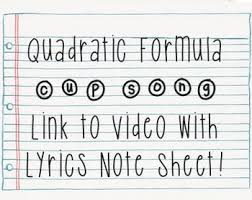 Quadratic Formula
cup song
Link to Video with
Lyrics Note Sheet!